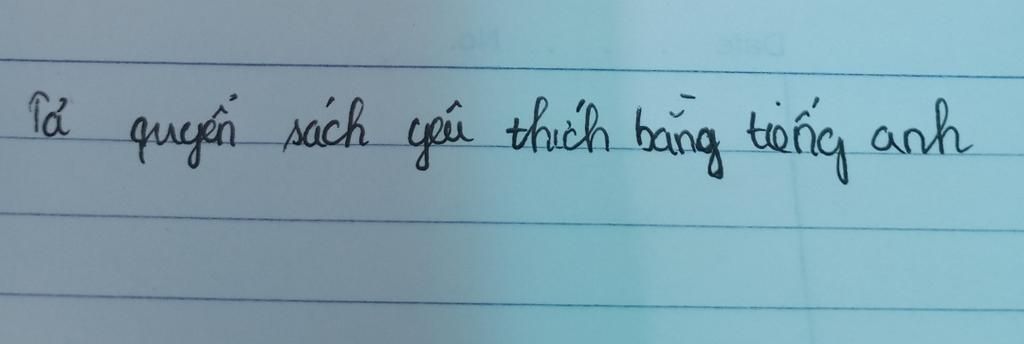 Tả quyển sách yêu thích bằng tiếng anh